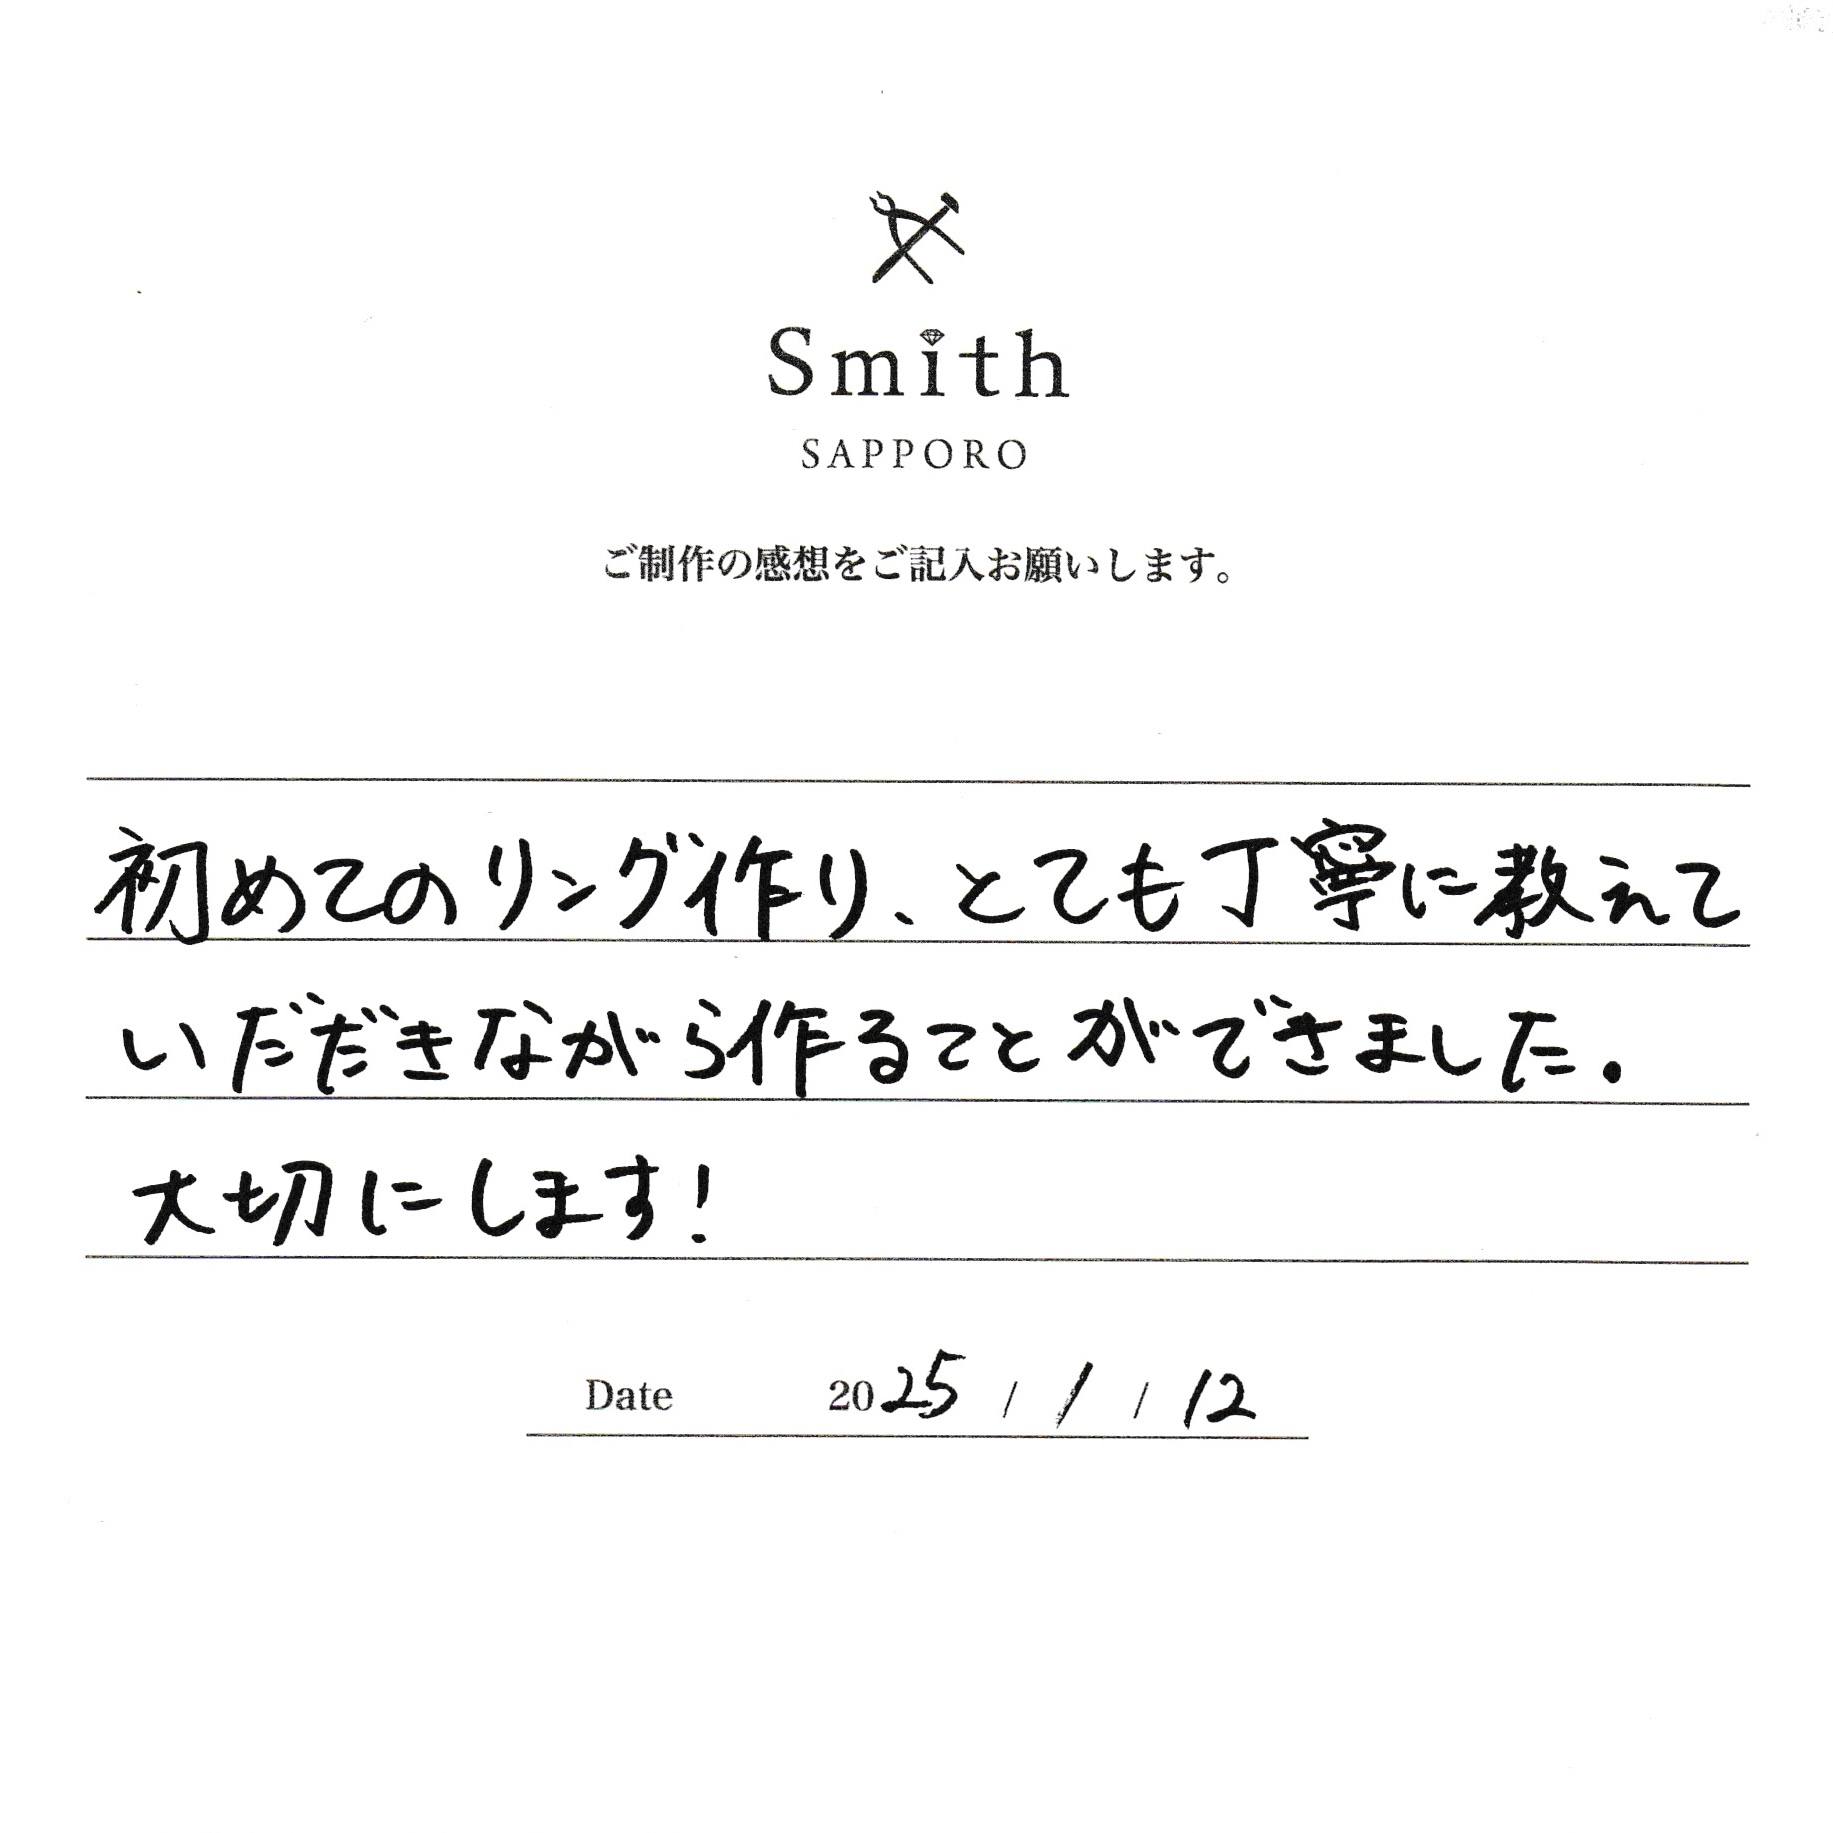 Smith
SAPPORO
ご制作の感想をご記入お願いします。
初めてのリング作り、とても丁寧に教えて
いだだきながら作ることができました.
大切にします!
Date 2025 / 1 / 12